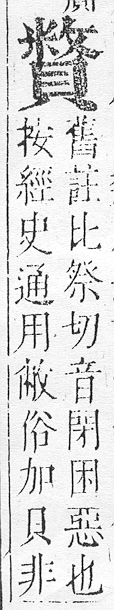 舊註比祭切音閉困惡也
按經史通用敝俗加貝非